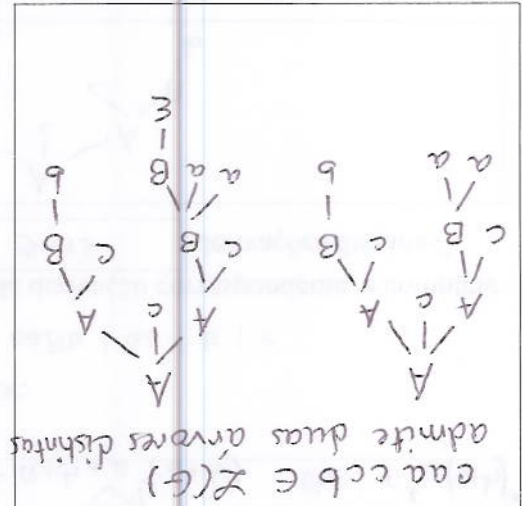 caaccb ∈ L(G)
admite duas árvores distintas
A A
c c
A A A A
c B c B c B c B
a a b a a B b
ε